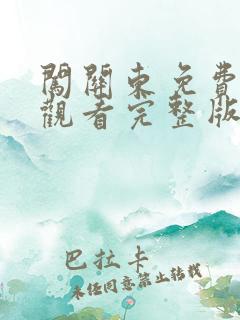 闖關東免費
觀看完整版
巴拉卡
未经同意禁止转载